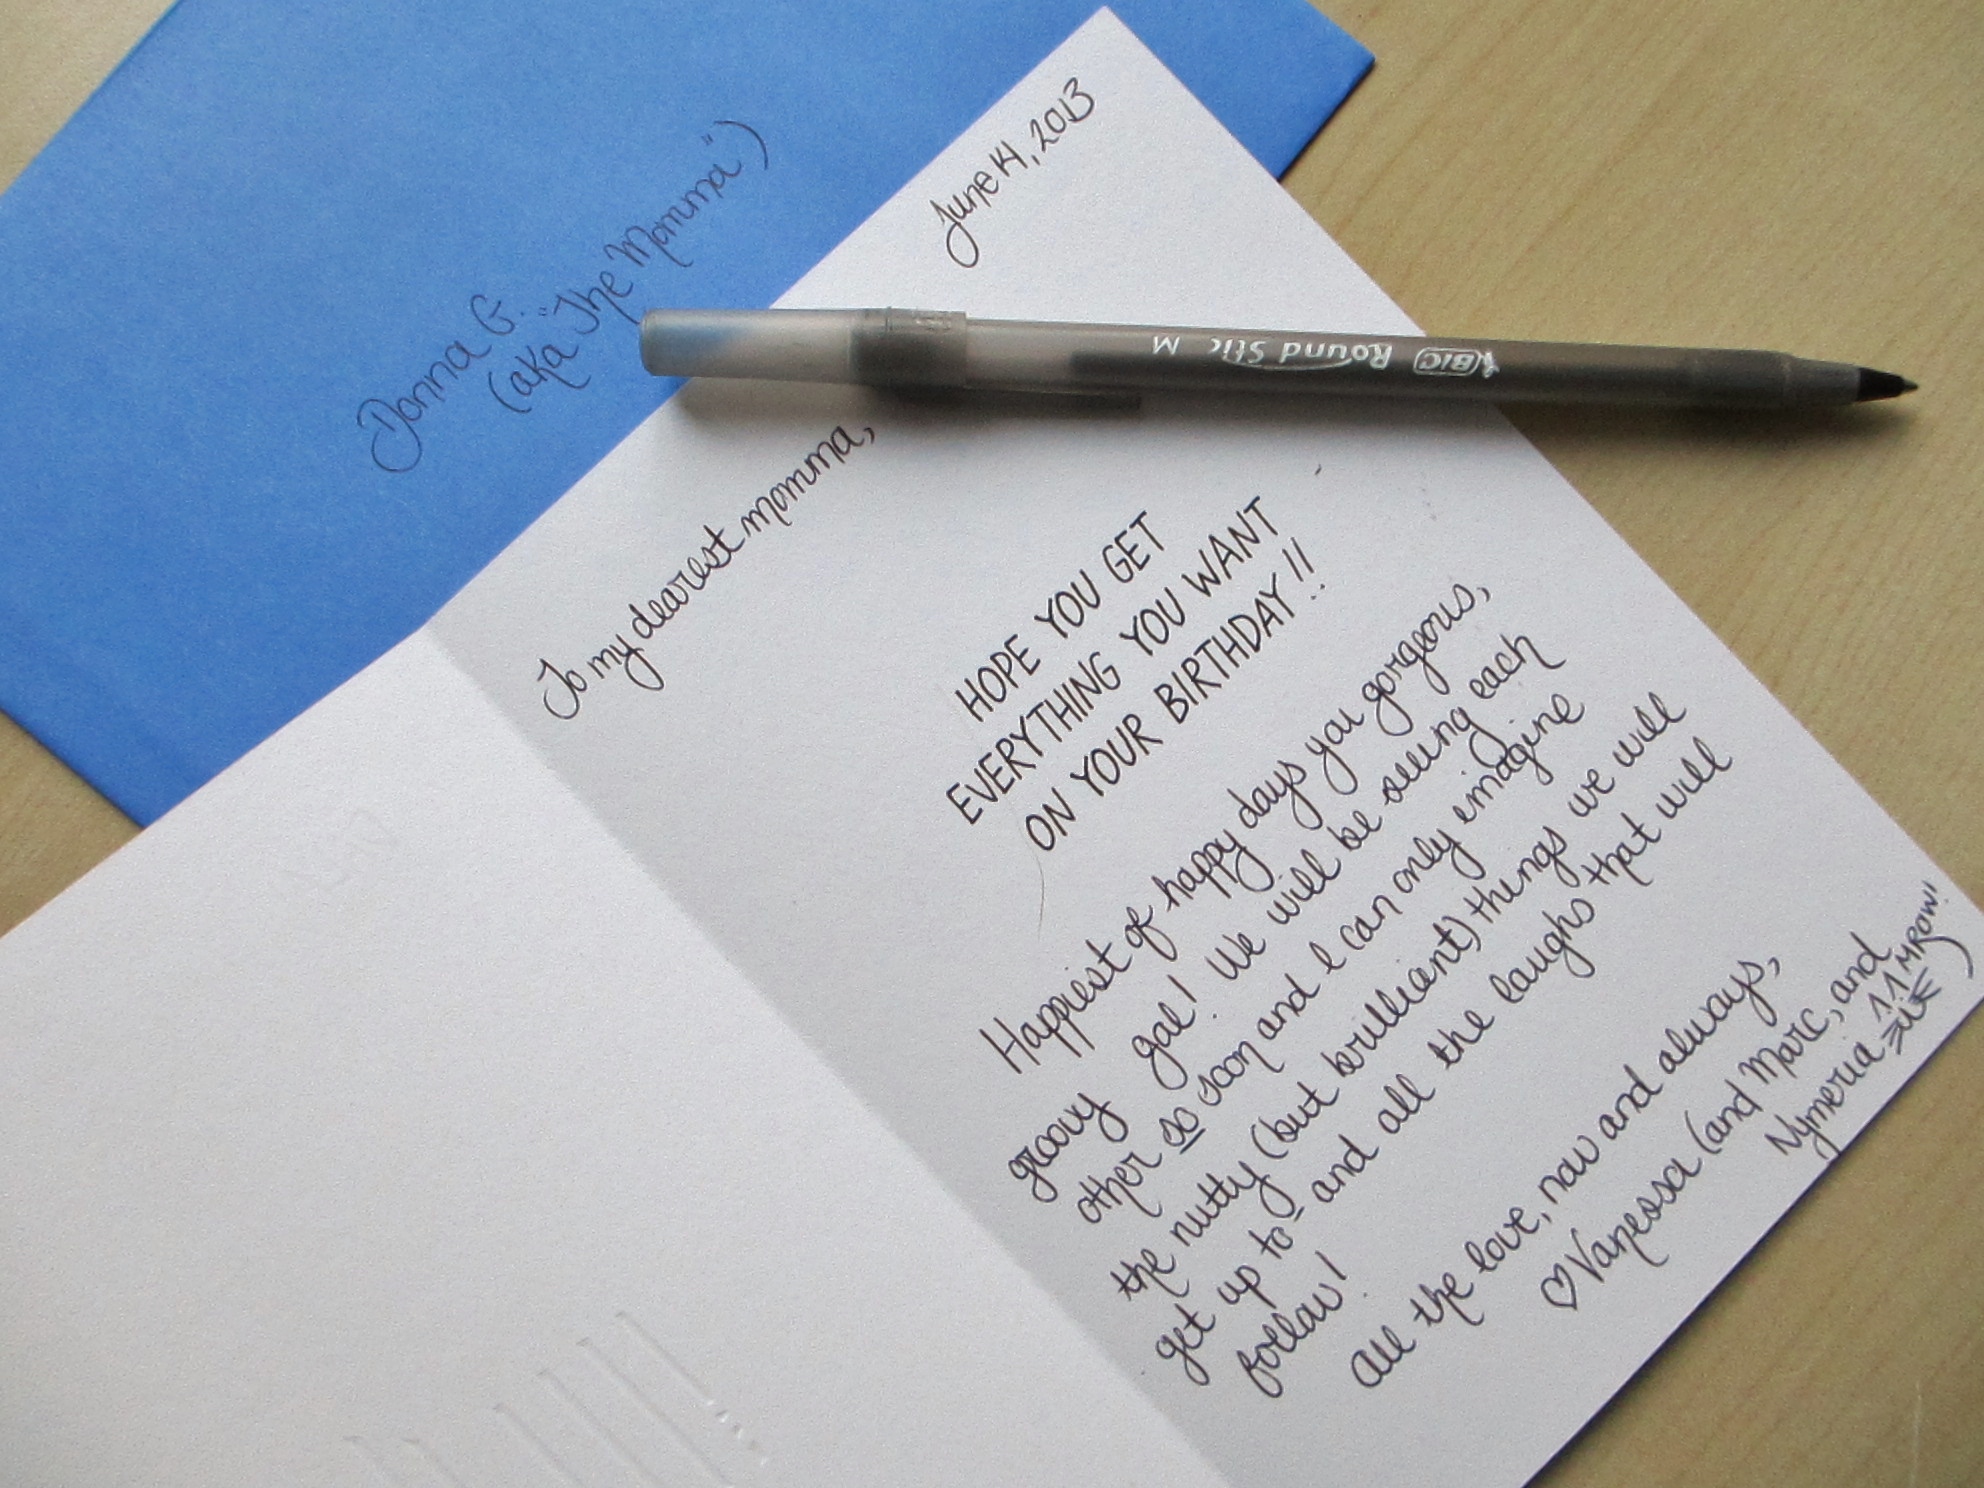 Donna G.
(aka "The Momma")
June 14, 2013
BIC Round Stic M
To my dearest momma,
HOPE YOU GET
EVERYTHING YOU WANT
ON YOUR BIRTHDAY!!
Happiest of happy days you gorgeous,
groovy gal! We will be seeing each
other so soon and I can only imagine
the nutty (but brilliant) things we will
get up to - and all the laughs that will
follow!
All the love, now and always,
♡ Vanessa (and Marc, and
Nymeria MROW!)